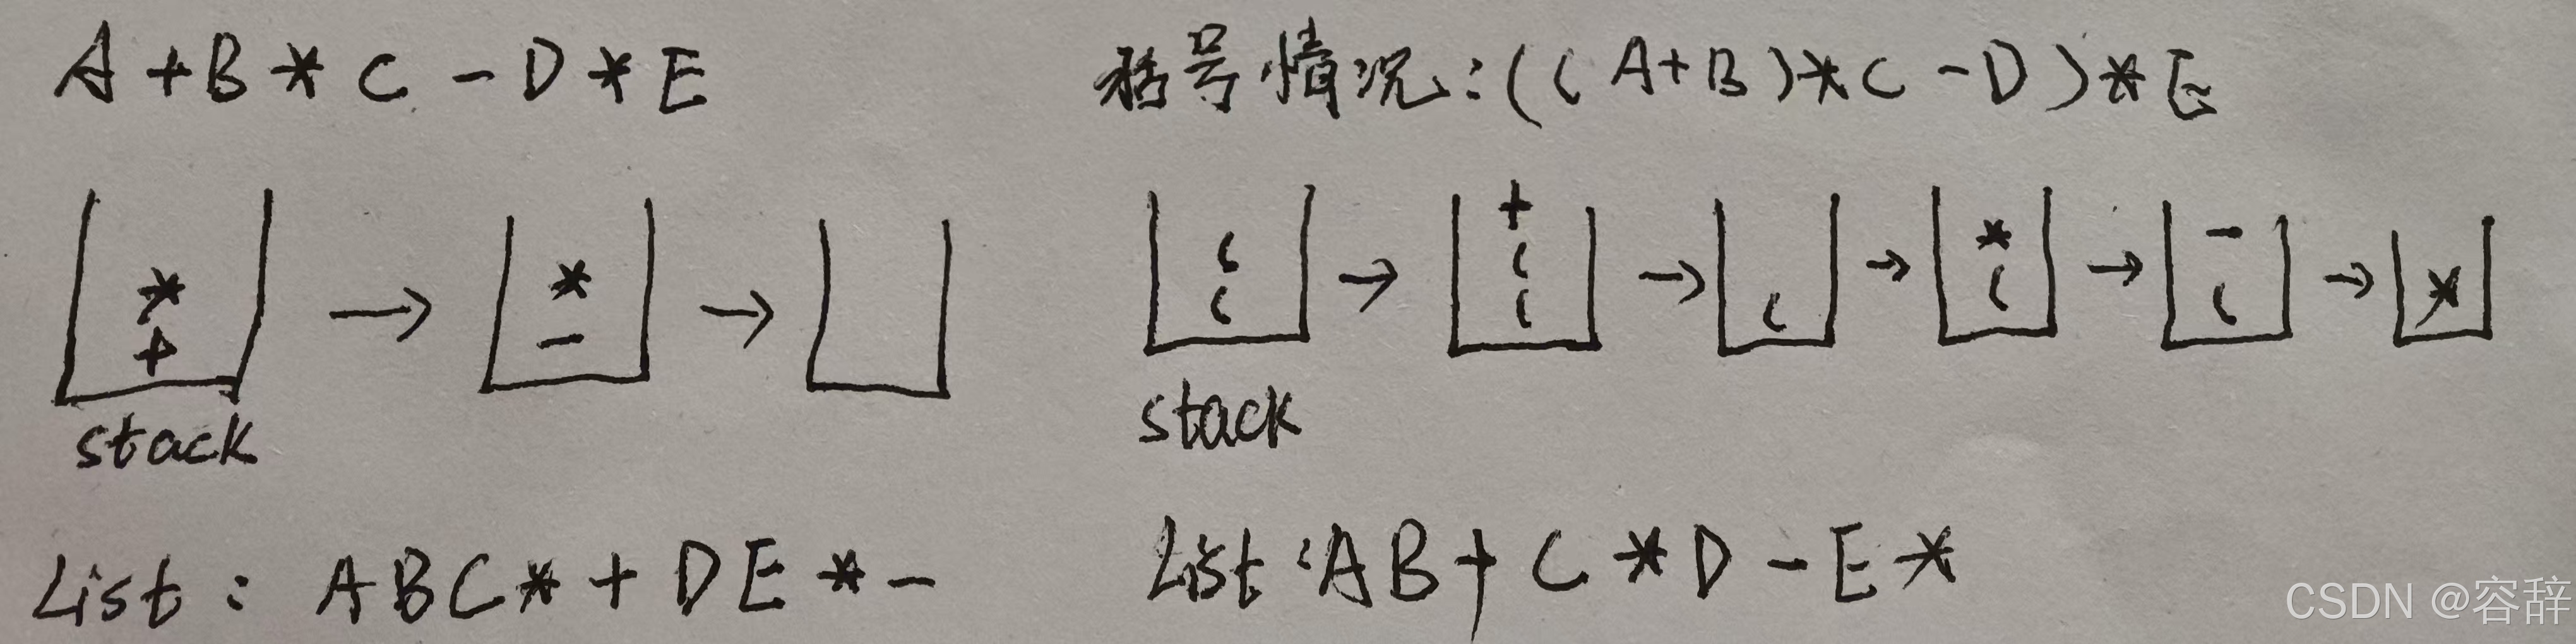 A+B*C-D*E
*
+
*
-
stack
List: ABC*+DE*-
括号情况:((A+B)*C-D)*E
(
(
+
(
(
(
*
(
-
(
*
stack
List:AB+C*D-E*
CSDN @容辞